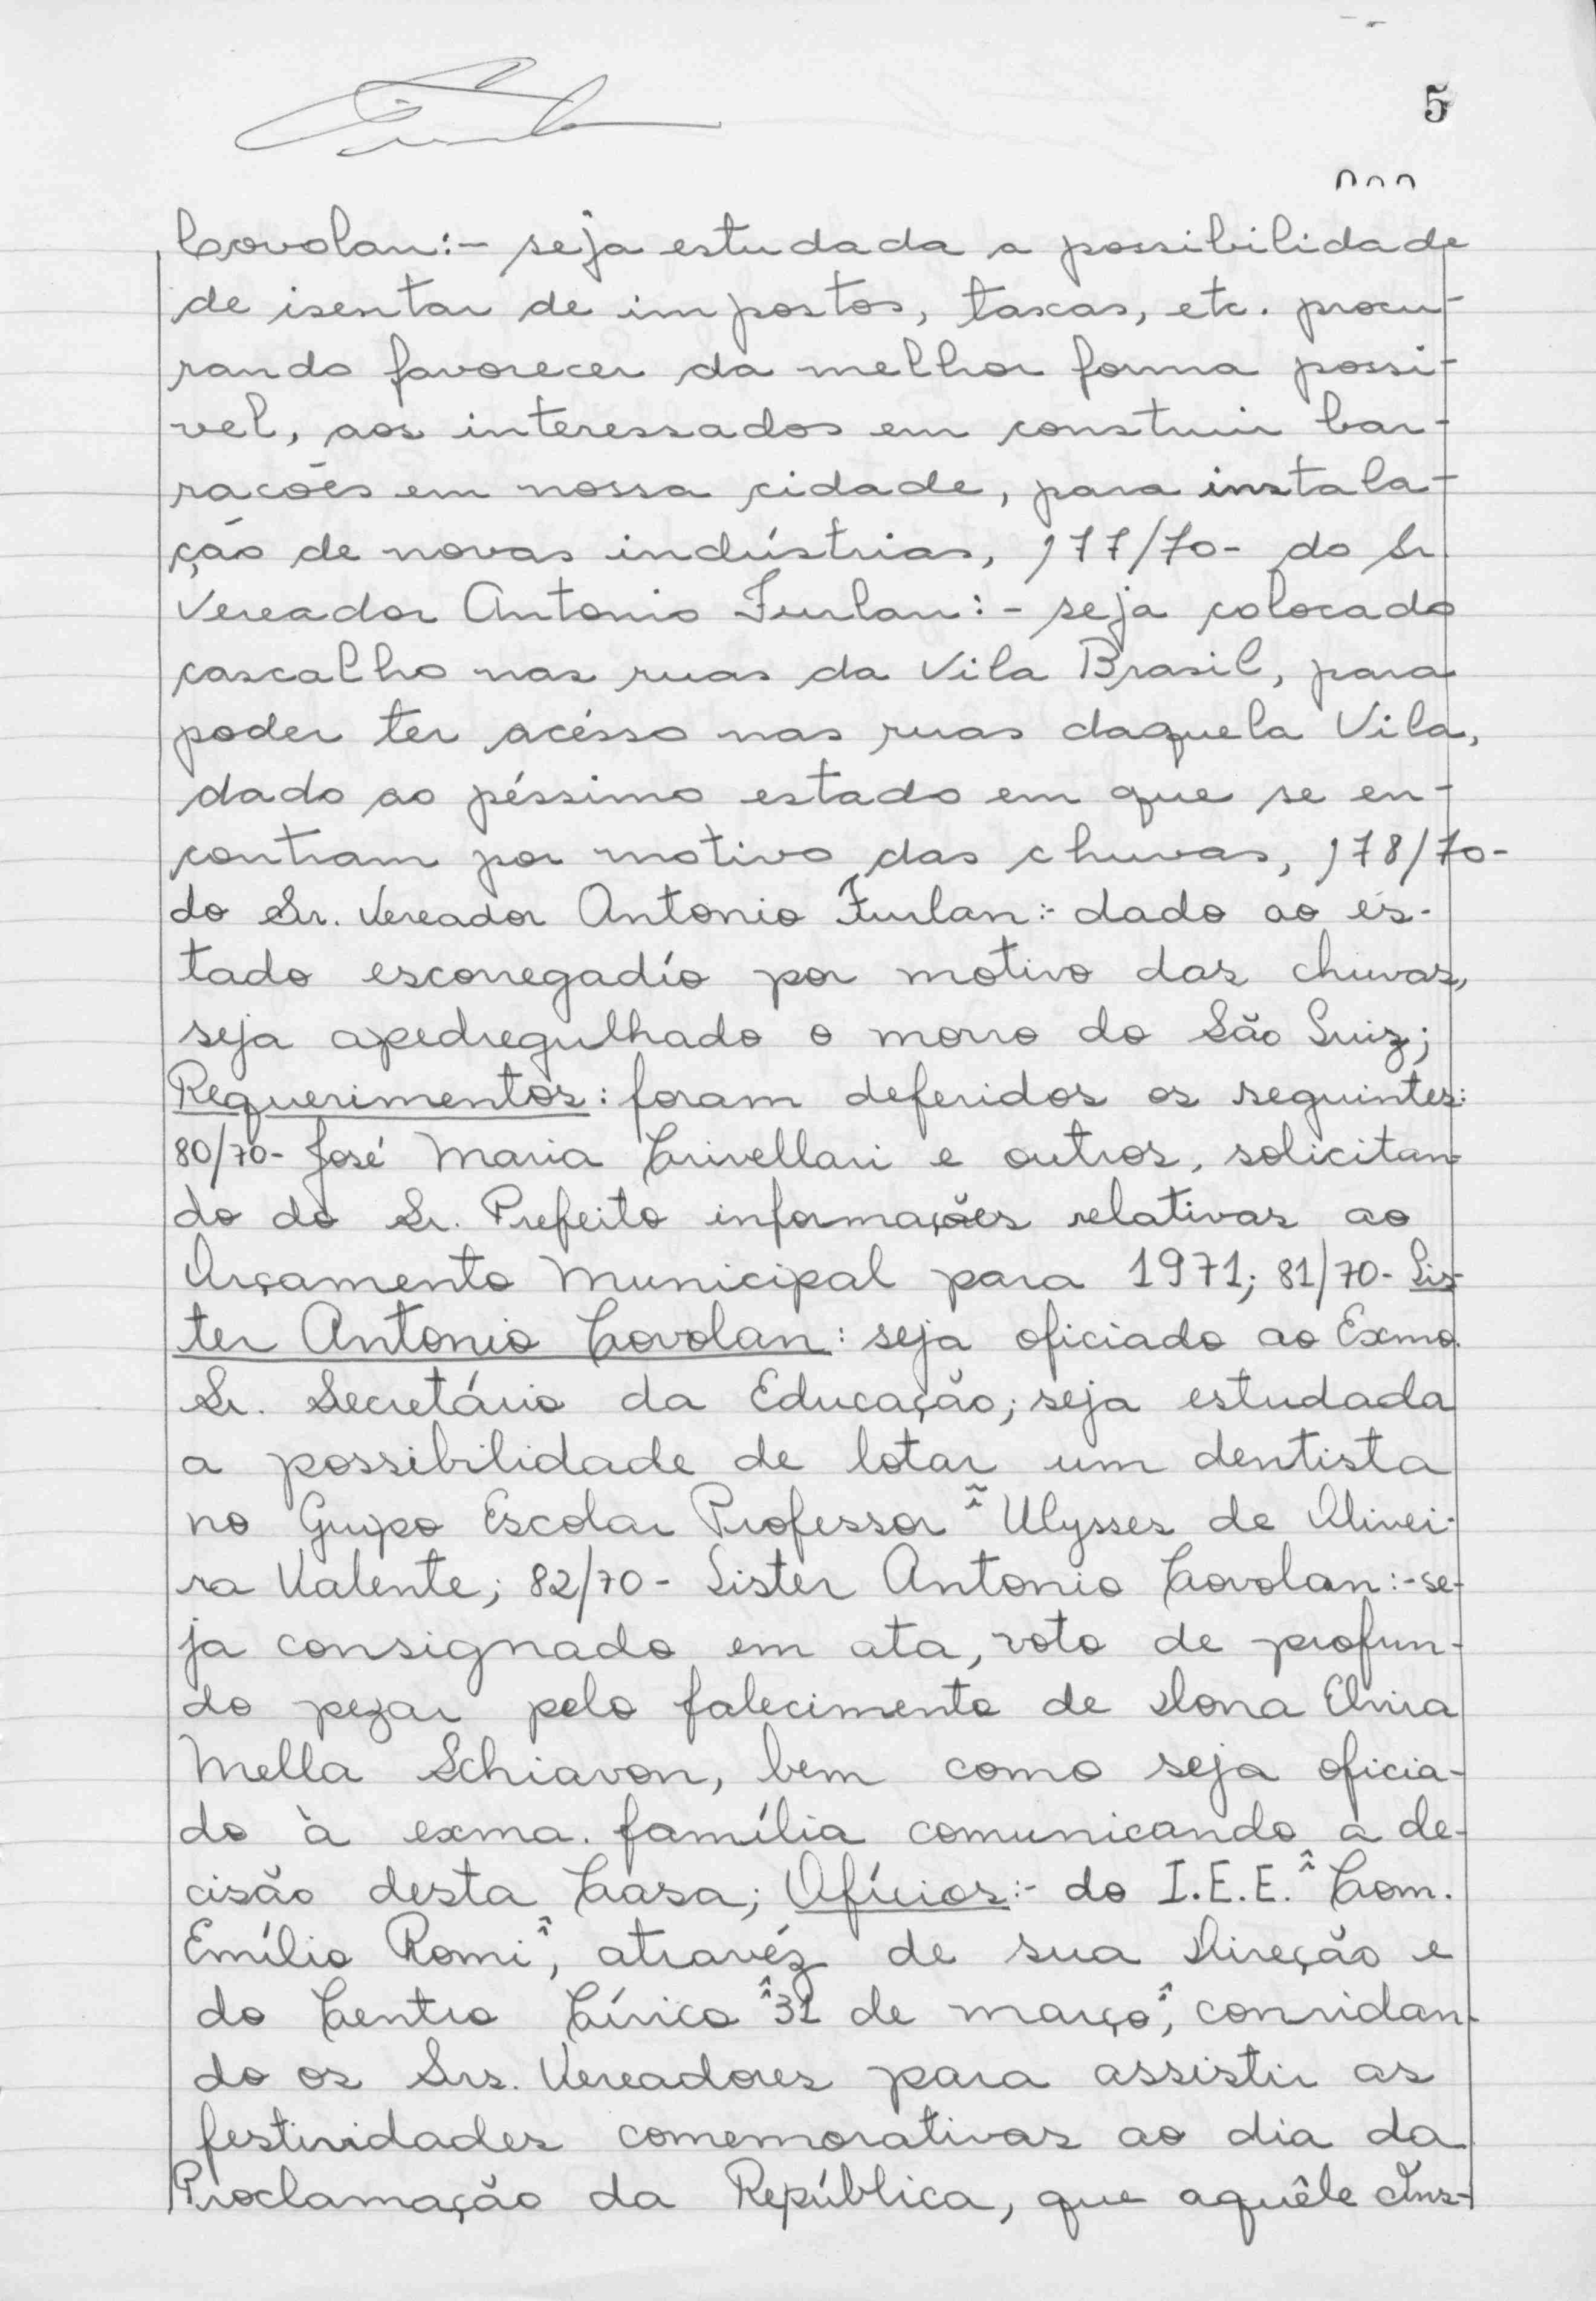 5
Covolan:- seja estudada a possibilidade
de isentar de impostos, taxas, etc. procu-
rando favorecer da melhor forma possi-
vel, aos interessados em construir bar-
racões em nossa cidade, para instala-
ção de novas indústrias, 177/70- do Sr.
Vereador Antonio Furlan:- seja colocado
cascalho nas ruas da Vila Brasil, para
poder ter acésso nas ruas daquela Vila,
dado ao péssimo estado em que se en-
contram por motivo das chuvas, 178/70-
do Sr. Vereador Antonio Furlan:- dado ao es-
tado escorregadío por motivo das chuvas,
seja apedregulhado o morro do São Luiz;
Requerimentos: foram deferidos os seguintes:
80/70- José Maria Crivellari e outros, solicitan-
do do Sr. Prefeito informações relativas ao
Orçamento Municipal para 1971; 81/70- Lis-
ter Antonio Covolan: seja oficiado ao Exmo.
Sr. Secretário da Educação; seja estudada
a possibilidade de lotar um dentista
no Grupo Escolar Professor "Ulysses de Olivei-
ra Valente; 82/70- Lister Antonio Covolan:- se-
ja consignado em ata, voto de profun-
do pezar pelo falecimento de Dona Elvira
Mella Schiavon, bem como seja oficia-
do à exma. família comunicando a de-
cisão desta Casa; Ofícios:- do I.E.E. "Com.
Emílio Romi", atravéz de sua Direção e
do Centro Cívico "31 de março", convidan-
do os Srs. Vereadores para assistir as
festividades comemorativas ao dia da
Proclamação da República, que aquêle Ins-